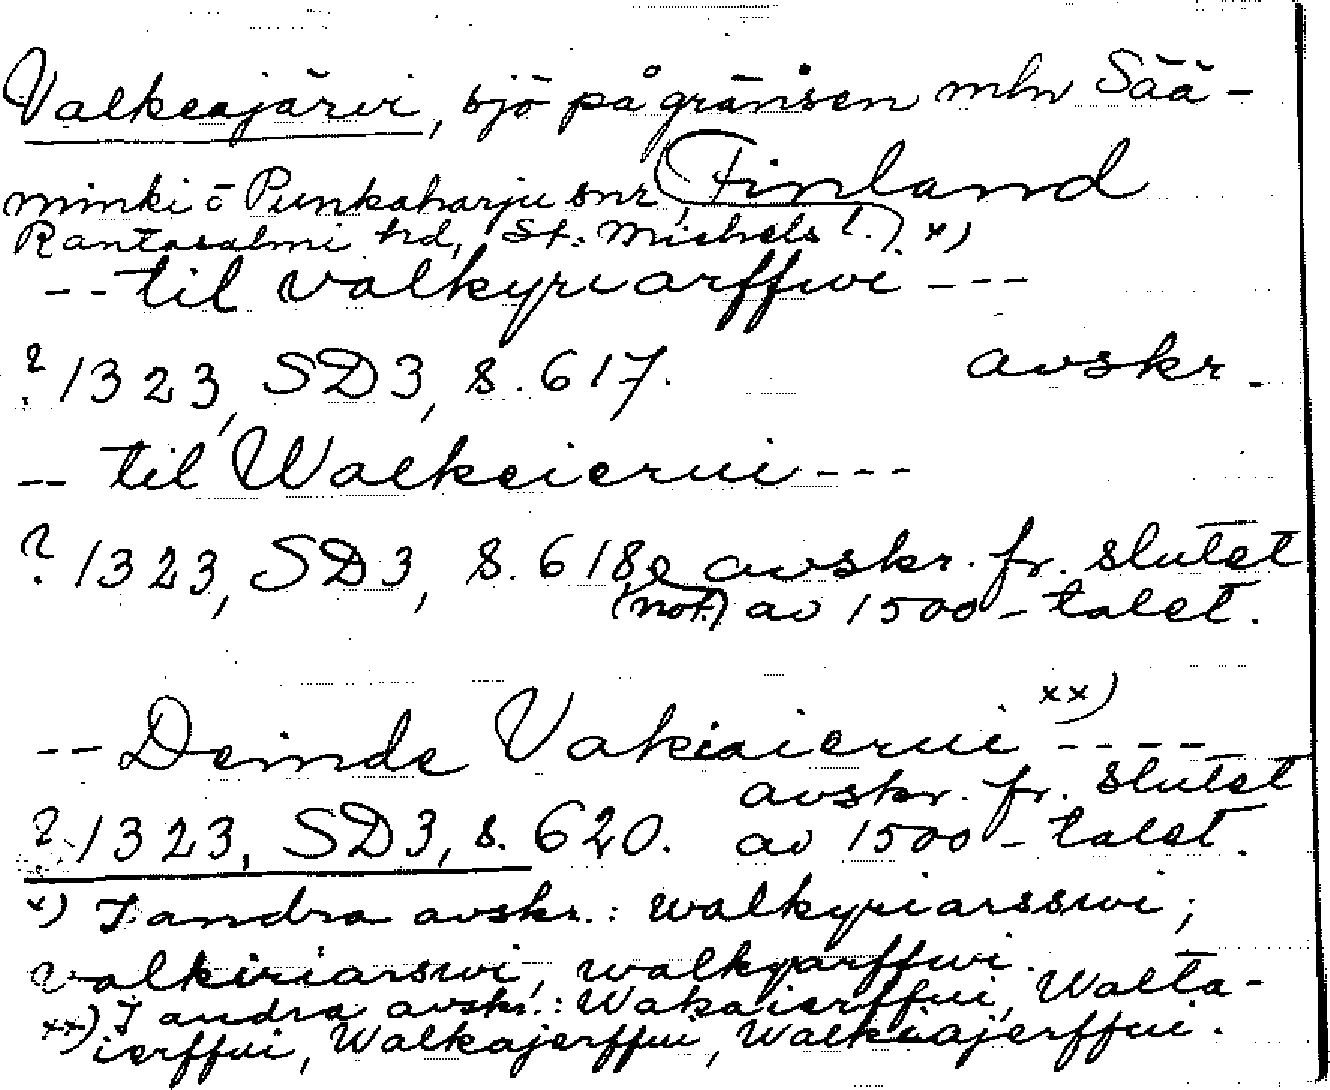 Valkeajärvi, sjö på gränsen mln Sää-
minki o Punkaharju snr, Finland
Rantasalmi hd, St. Michels l.) x)
-- til valkyriarffwi ---
? 1323, SD3, s. 617. avskr.
-- til Walkeierui ---
? 1323, SD3, s. 618 avskr. fr. slutet
(not.) av 1500-talet.
-- Deinde Vakiaierui xx) ----
avskr. fr. slutet
? 1323, SD3, s. 620. av 1500-talet.
x) I andra avskr.: walkyriarsswi;
valkiriarswi, walkyarffwi.
xx) I andra avskr.: Wakaierffui, Walta-
ierffui, Walkajerffui, Walkiajerffui.